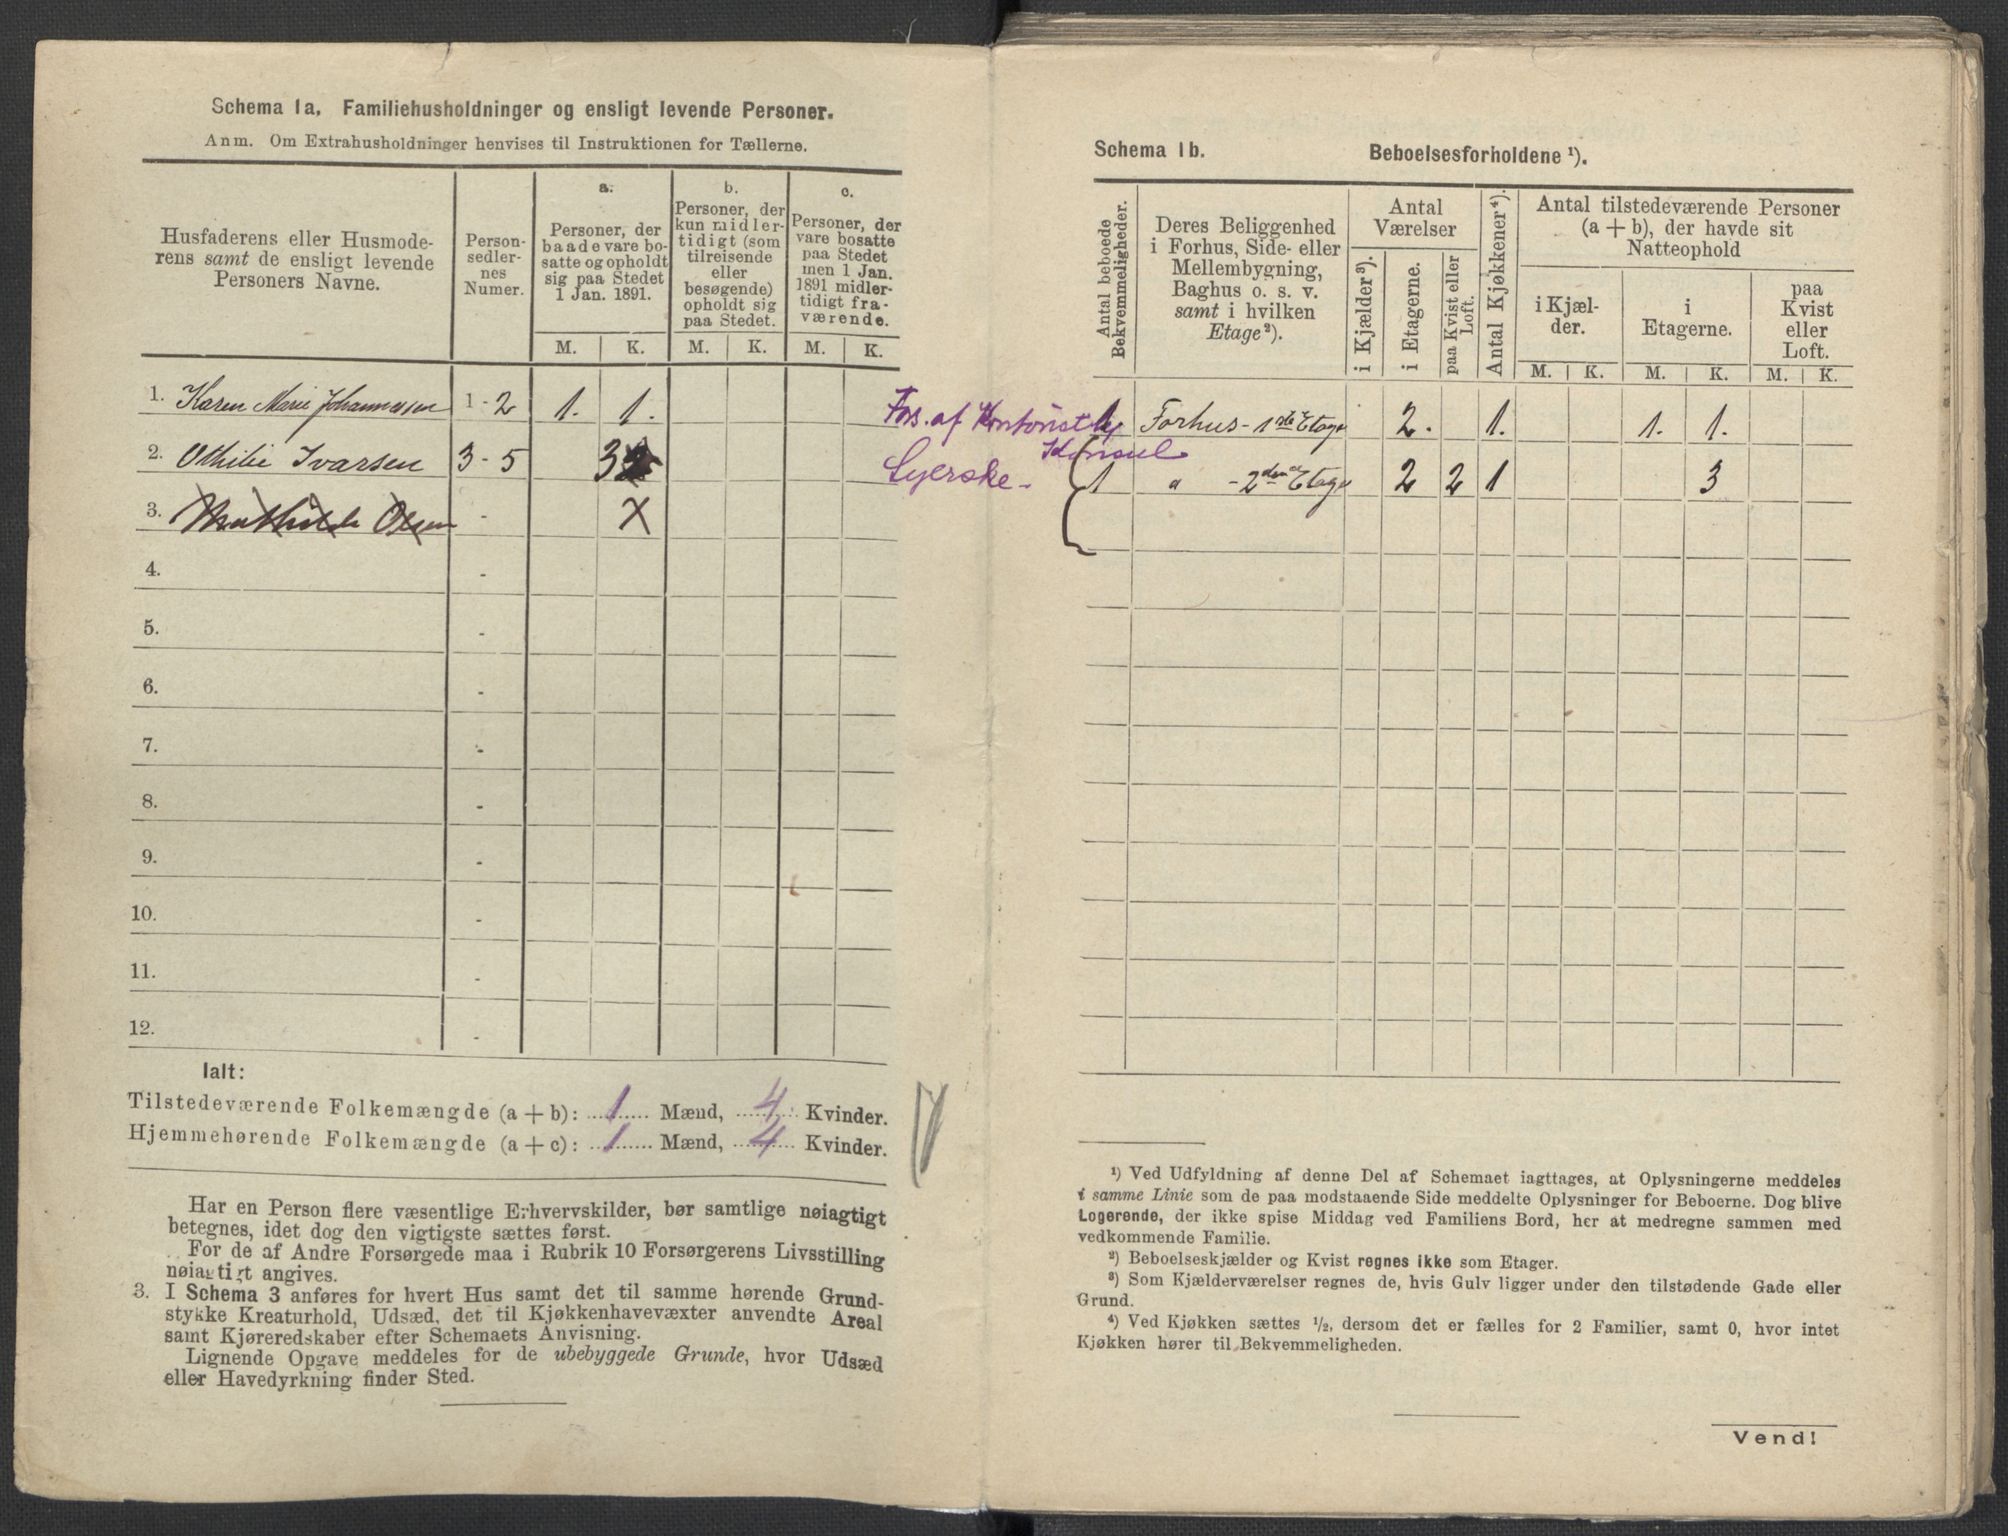 Schema 1a. Familiehusholdninger og ensligt levende Personer.
Anm. Om Extrahusholdninger henvises til Instruktionen for Tællerne.
Husfaderens eller Husmode-
rens samt de ensligt levende
Personers Navne.
Person-
sedler-
nes
Numer.
a.
Personer, der
baade vare bo-
satte og opholdt
sig paa Stedet
1 Jan. 1891.
b.
Personer, der
kun midler-
tidigt (som
tilreisende
eller
besøgende)
opholdt sig
paa Stedet.
c.
Personer, der
vare bosatte
paa Stedet
men 1 Jan.
1891 midler-
tidigt fra-
værende.
M. K. M. K. M. K.
1. Karen Marie Johannessen 1-2 1. 1.
2. Othilie Ivarsen 3-5 3
3. Mathilde Olsen -
4. -
5. -
6. -
7. -
8. -
9. -
10. -
11. -
12. -
Ialt:
Tilstedeværende Folkemængde (a + b): 1 Mænd, 4 Kvinder.
Hjemmehørende Folkemængde (a + c): 1 Mænd, 4 Kvinder.
Har en Person flere væsentlige Erhvervskilder, bør samtlige nøiagtigt
betegnes, idet dog den vigtigste sættes først.
For de af Andre Forsørgede maa i Rubrik 10 Forsørgerens Livsstilling
nøiagtigt angives.
3. I Schema 3 anføres for hvert Hus samt det til samme hørende Grund-
stykke Kreaturhold, Udsæd, det til Kjøkkenhavevæxter anvendte Areal
samt Kjøreredskaber efter Schemaets Anvisning.
Lignende Opgave meddeles for de ubebyggede Grunde, hvor Udsæd
eller Havedyrkning finder Sted.
Schema 1b. Beboelsesforholdene ¹).
Antal beboede
Bekvemmeligheder.
Deres Beliggenhed
i Forhus, Side- eller
Mellembygning,
Baghus o. s. v.
samt i hvilken
Etage²).
Antal
Værelser
i Kjælder³).
i Etagerne.
paa Kvist eller
Loft.
Antal Kjøkkener⁴).
Antal tilstedeværende Personer
(a + b), der havde sit
Natteophold
i Kjæl-
der.
i
Etagerne.
paa
Kvist
eller
Loft.
M. K. M. K. M. K.
Fors. af Kontorist
Konsul
1 Forhus - 1ste Etage 2. 1. 1. 1.
Syerske -
1 " - 2den Etage 2 2 1 3
¹) Ved Udfyldning af denne Del af Schemaet iagttages, at Oplysningerne meddeles
i samme Linie som de paa modstaaende Side meddelte Oplysninger for Beboerne. Dog blive
Logerende, der ikke spise Middag ved Familiens Bord, her at medregne sammen med
vedkommende Familie.
²) Beboelseskjælder og Kvist regnes ikke som Etager.
³) Som Kjælderværelser regnes de, hvis Gulv ligger under den tilstødende Gade eller
Grund.
⁴) Ved Kjøkken sættes ½, dersom det er fælles for 2 Familier, samt 0, hvor intet
Kjøkken hører til Bekvemmeligheden.
Vend!